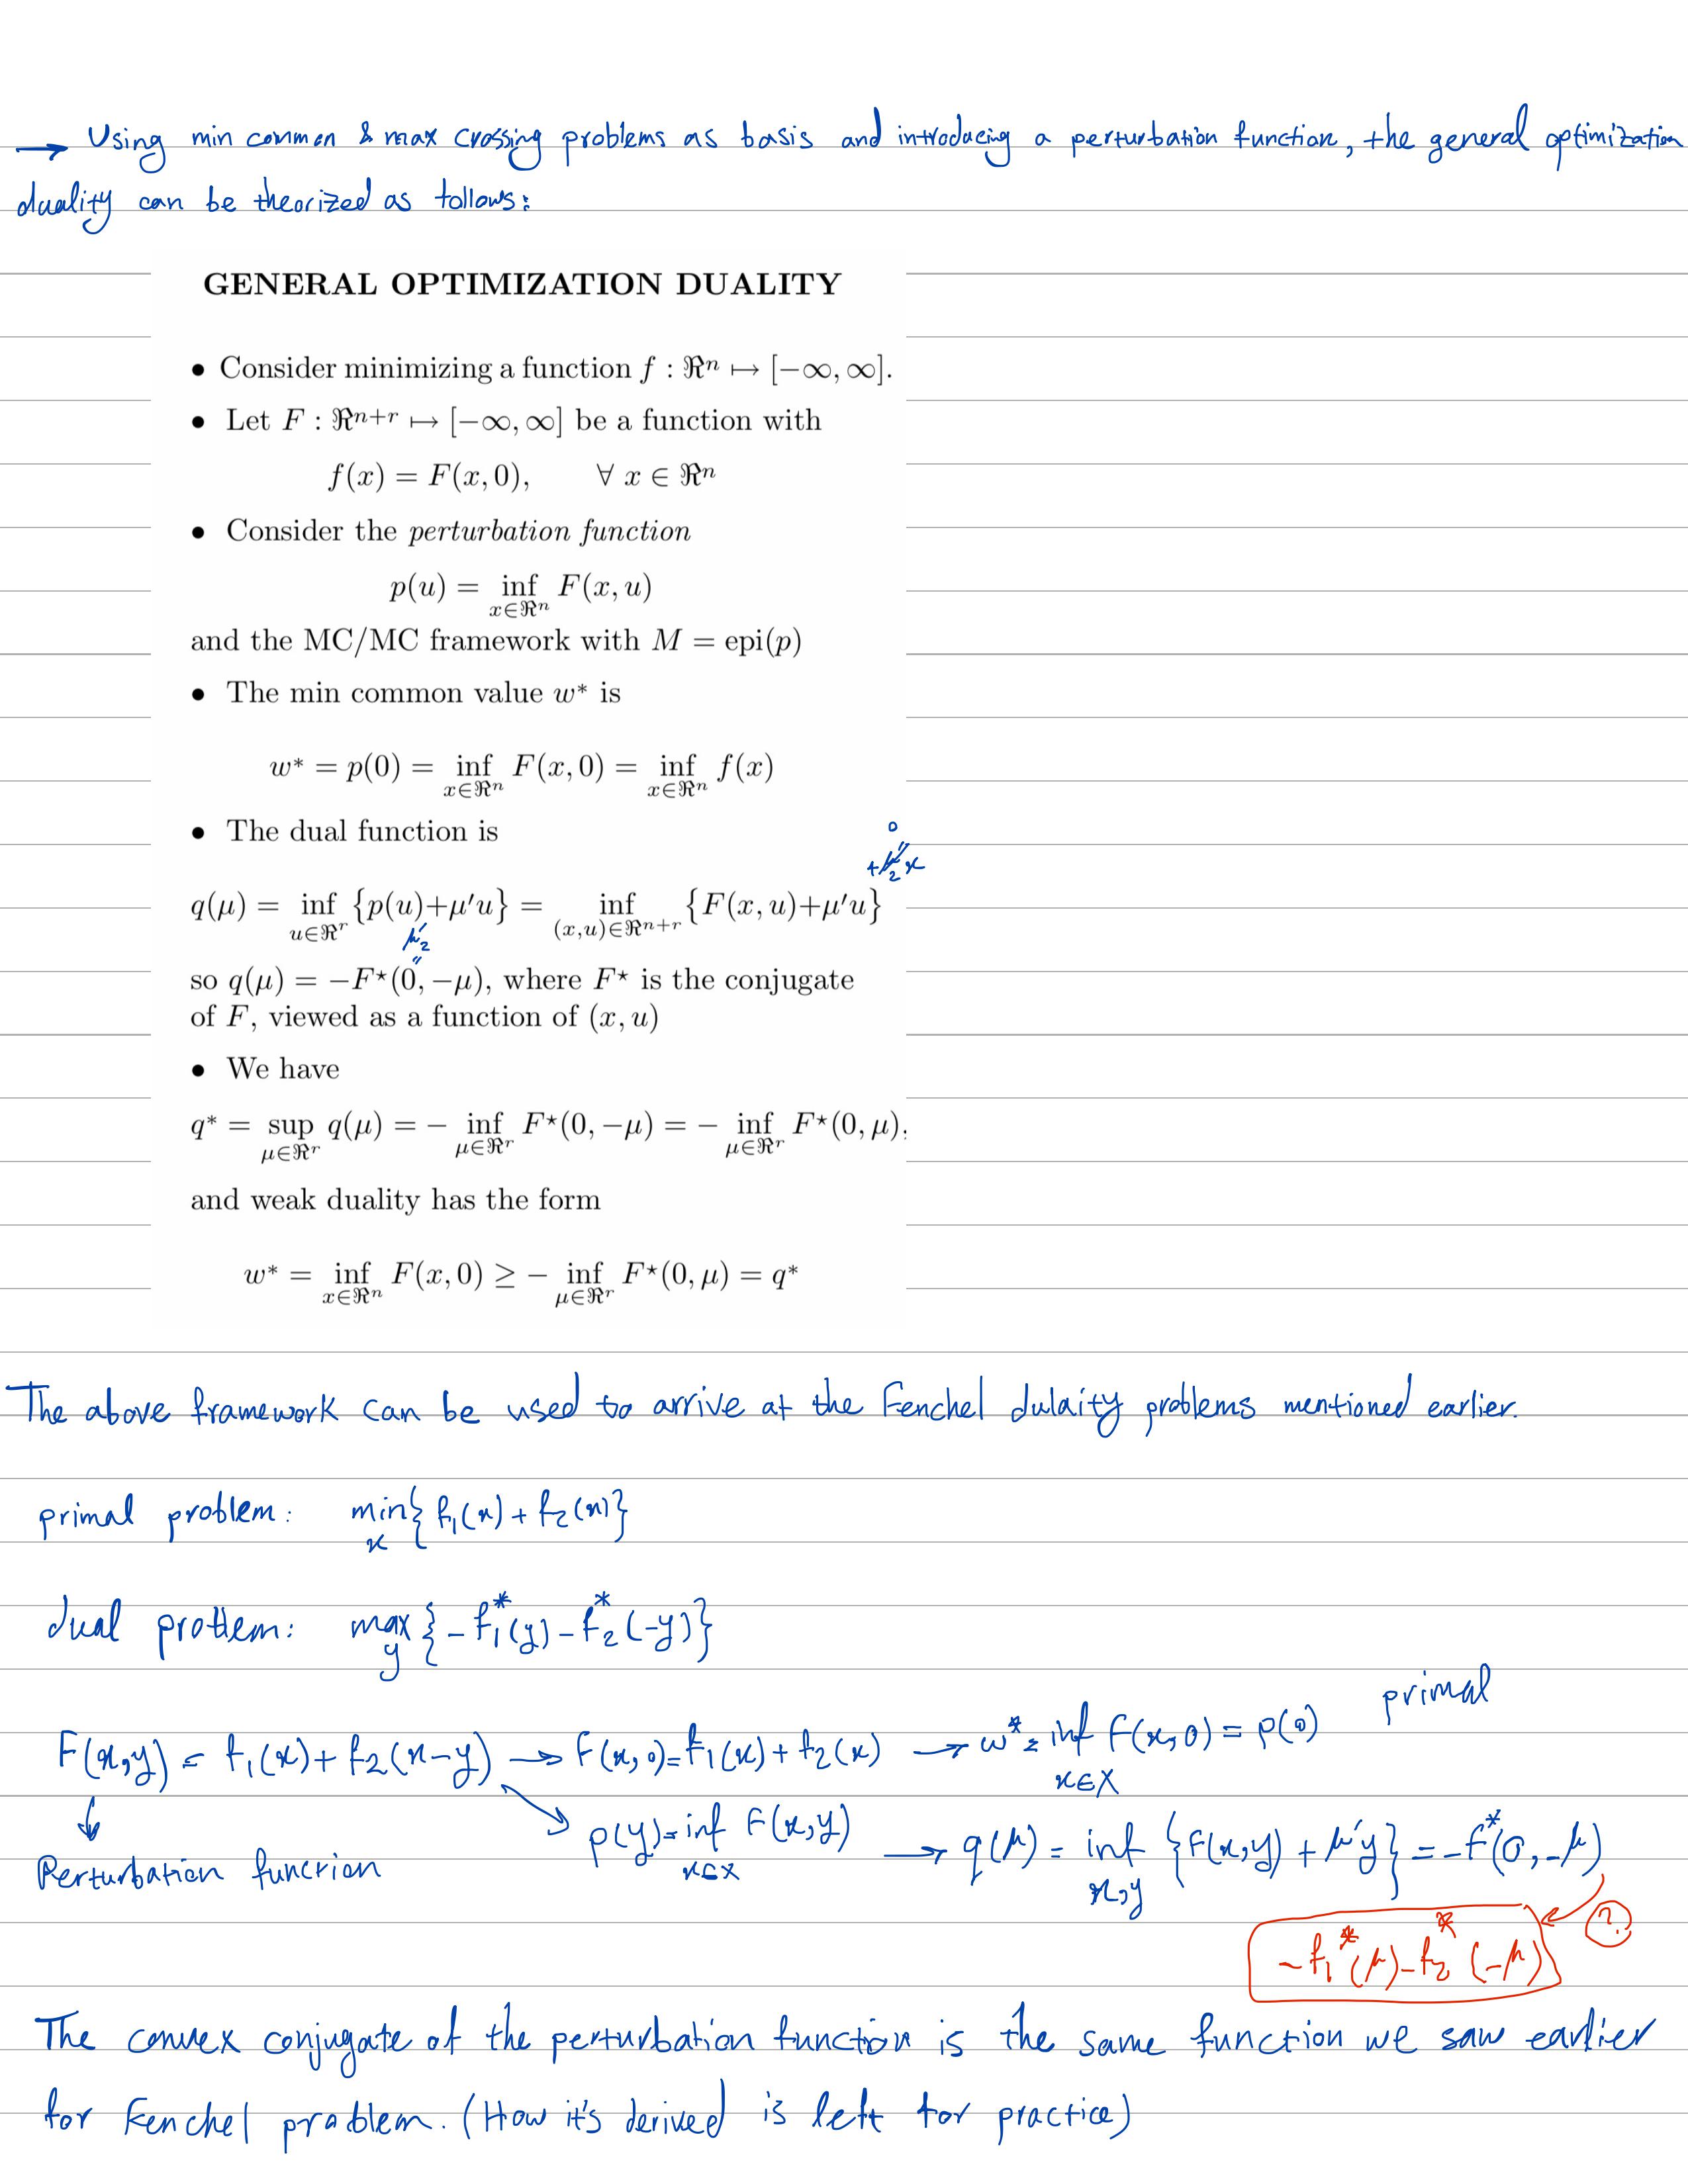 → Using min common & max crossing problems as basis and introducing a perturbation function, the general optimization
duality can be theorized as follows:
GENERAL OPTIMIZATION DUALITY
• Consider minimizing a function f : ℜⁿ ↦ [−∞, ∞].
• Let F : ℜⁿ⁺ʳ ↦ [−∞, ∞] be a function with
f(x) = F(x, 0), ∀ x ∈ ℜⁿ
• Consider the perturbation function
p(u) = inf_{x∈ℜⁿ} F(x, u)
and the MC/MC framework with M = epi(p)
• The min common value w* is
w* = p(0) = inf_{x∈ℜⁿ} F(x, 0) = inf_{x∈ℜⁿ} f(x)
• The dual function is
0
"
+μ'₂x
q(μ) = inf_{u∈ℜʳ} {p(u)+μ'u} = inf_{(x,u)∈ℜⁿ⁺ʳ} {F(x, u)+μ'u}
μ'₂
"
so q(μ) = −F⋆(0, −μ), where F⋆ is the conjugate
of F, viewed as a function of (x, u)
• We have
q* = sup_{μ∈ℜʳ} q(μ) = − inf_{μ∈ℜʳ} F⋆(0, −μ) = − inf_{μ∈ℜʳ} F⋆(0, μ).
and weak duality has the form
w* = inf_{x∈ℜⁿ} F(x, 0) ≥ − inf_{μ∈ℜʳ} F⋆(0, μ) = q*
The above framework can be used to arrive at the Fenchel dulaity problems mentioned earlier.
primal problem: min_x {f₁(x) + f₂(x)}
dual problem: max_y {−f₁*(y) − f₂*(−y)}
primal
F(x,y) = f₁(x) + f₂(x−y) → F(x,0) = f₁(x) + f₂(x) → w* = inf_{x∈X} F(x,0) = p(0)
↓ ↘ p(y) = inf_{x∈X} F(x,y) → q(μ) = inf_{x,y} {F(x,y) + μ'y} = −F*(0,−μ)
Perturbation function
?
−f₁*(μ) − f₂*(−μ)
The convex conjugate of the perturbation function is the same function we saw earlier
for Fenchel problem. (How it's derived is left for practice)